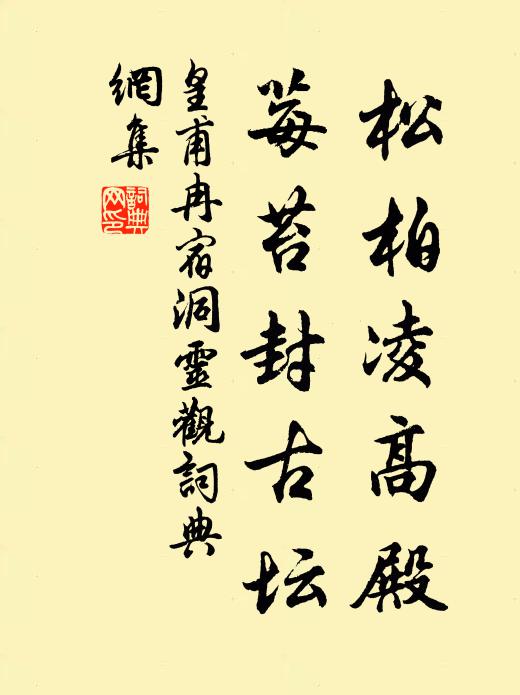 松柏凌高殿
莓苔封古坛
皇甫冉宿洞靈觀詞典
網集
詞典
网印